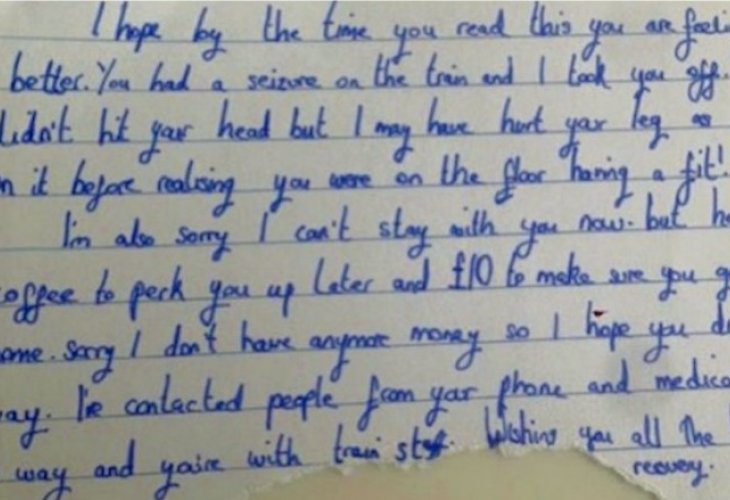 I hope by the time you read this you are feeli
better. You had a seizure on the train and I took you off.
didn't hit your head but I may have hurt your leg as
n it before realising you were on the floor having a fit!
I'm also sorry I can't stay with you now. but h
offee to perk you up later and £10 to make sure you g
ome. Sorry I don't have anymore money so I hope you d
ay. I've contacted people from your phone and medica
way and you're with train staff. Wishing you all the
recovery.